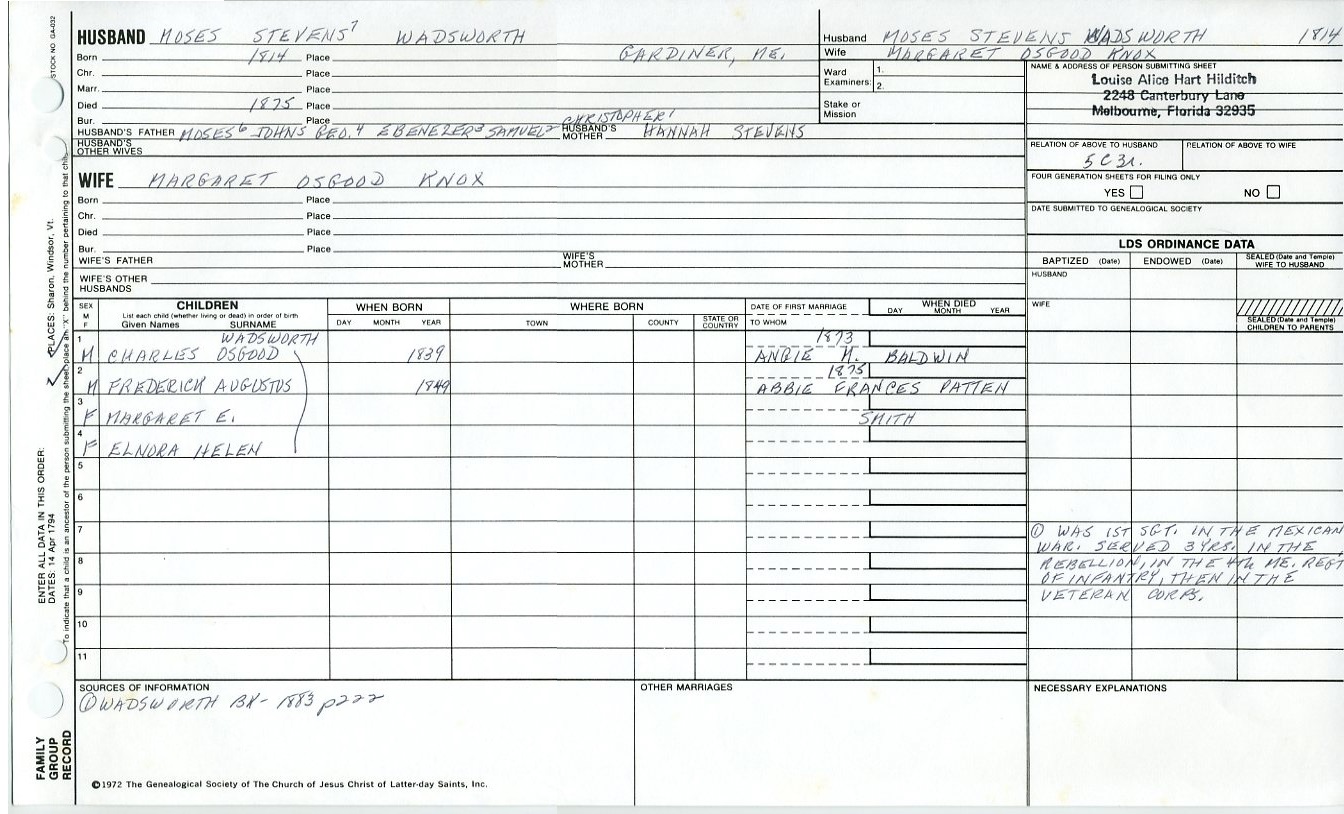 STOCK NO. GA-032
HUSBAND MOSES STEVENS7 WADSWORTH
Born 1814 Place GARDINER, ME.
Chr. Place
Marr. Place
Died 1875 Place
Bur. Place
CHRISTOPHER1
HUSBAND'S FATHER MOSES6 JOHN5 GEO.4 EBENEZER3 SAMUEL2 HUSBAND'S MOTHER HANNAH STEVENS
HUSBAND'S OTHER WIVES
Husband MOSES STEVENS WADSWORTH 1814
Wife MARGARET OSGOOD KNOX
Ward Examiners: 1.
2.
Stake or Mission
NAME & ADDRESS OF PERSON SUBMITTING SHEET
Louise Alice Hart Hilditch
2248 Canterbury Lane
Melbourne, Florida 32935
RELATION OF ABOVE TO HUSBAND RELATION OF ABOVE TO WIFE
5C3r.
FOUR GENERATION SHEETS FOR FILING ONLY
YES NO
DATE SUBMITTED TO GENEALOGICAL SOCIETY
WIFE MARGARET OSGOOD KNOX
Born Place
Chr. Place
Died Place
Bur. Place
WIFE'S FATHER WIFE'S MOTHER
WIFE'S OTHER HUSBANDS
LDS ORDINANCE DATA
BAPTIZED (Date) ENDOWED (Date) SEALED (Date and Temple) WIFE TO HUSBAND
HUSBAND
WIFE
SEALED (Date and Temple) CHILDREN TO PARENTS
SEX M F
CHILDREN
List each child (whether living or dead) in order of birth
Given Names SURNAME
WHEN BORN
DAY MONTH YEAR
WHERE BORN
TOWN COUNTY STATE OR COUNTRY
DATE OF FIRST MARRIAGE
TO WHOM
WHEN DIED
DAY MONTH YEAR
1 WADSWORTH 1873
M CHARLES OSGOOD 1839 ANGIE M. BALDWIN
2 1875
M FREDERICK AUGUSTUS 1849 ABBIE FRANCES PATTEN
3
F MARGARET E. SMITH
4
F ELNORA HELEN
5
6
7
8
9
10
11
① WAS 1ST SGT. IN THE MEXICAN
WAR. SERVED 3YRS. IN THE
REBELLION, IN THE 4th ME. REGT
OF INFANTRY, THEN IN THE
VETERAN CORPS.
SOURCES OF INFORMATION
① WADSWORTH BK- 1883 p222
OTHER MARRIAGES
NECESSARY EXPLANATIONS
©1972 The Genealogical Society of The Church of Jesus Christ of Latter-day Saints, Inc.
FAMILY GROUP RECORD
ENTER ALL DATA IN THIS ORDER:
DATES: 14 Apr 1794
PLACES: Sharon, Windsor, Vt.
To indicate that a child is an ancestor of the person submitting the sheet, place an "X" behind the number pertaining to that child.